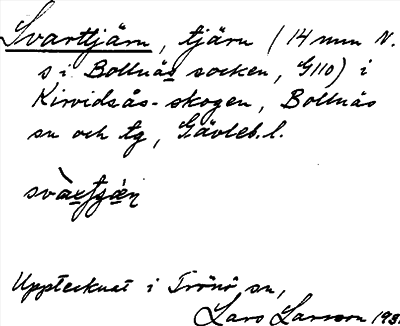 Svarttjärn, tjärn (14 mm N.
s i Bollnäs socken, G110) i
Kirvidsås-skogen, Bollnäs
sn och tg, Gävleb.l.
Upptecknat i Trönö sn,
Lars Larsson